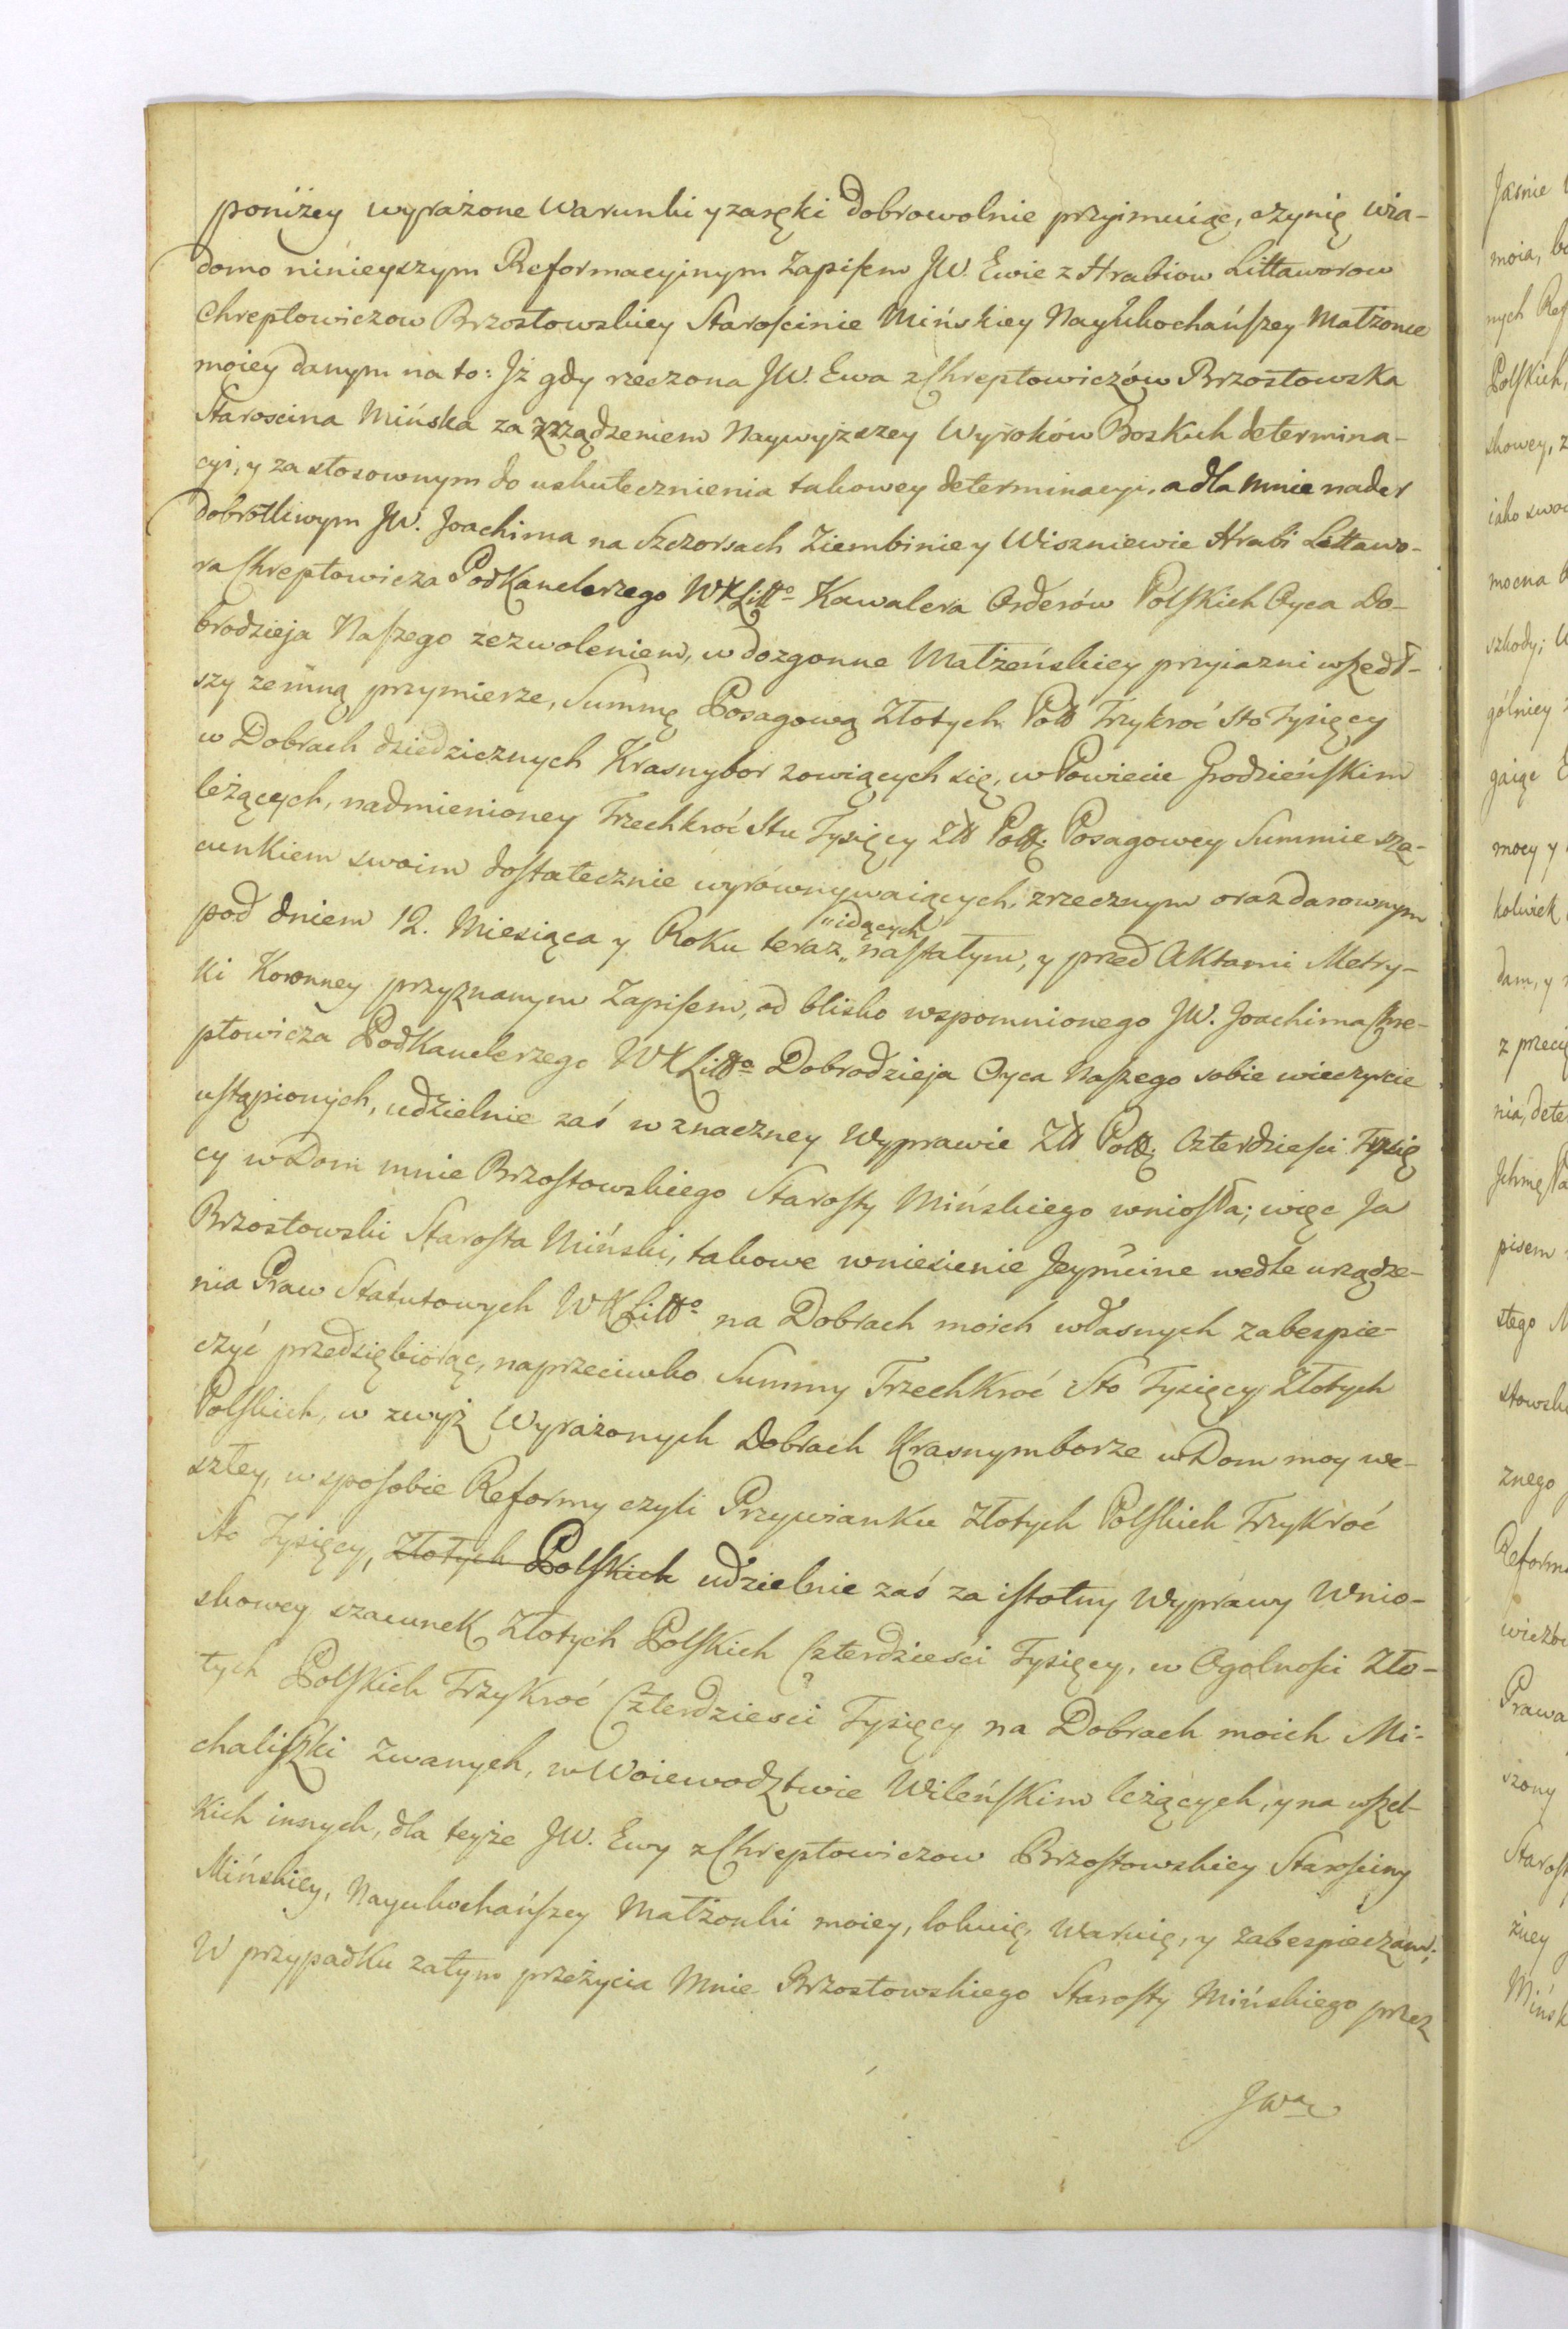 poniżey wyrażone Warunki y zaręki dobrowolnie przyimuiąc, czynię wia-
domo ninieyszym Reformacyjnym Zapisem JW. Ewie z Hrabiow Littaworow
Chreptowiczow Brzostowskiey Starościnie Mińskiey Nayukochańszey Małżonce
moiey danym na to: Jż gdy rzeczona JW. Ewa z Chreptowiczów Brzostowska
Staroscina Mińska za zrządzeniem Naywyższey Wyroków Boskich determina-
cyi, y za stosownym do uskutecznienia takowey determinacyi, a dla mnie nader
dobrotliwym JW. Joachima na Szczorsach Ziembinie y Wiszniewie Hrabi Littawo-
ra Chreptowicza Podkanclerzego WXLitto Kawalera Orderów Polskich Oyca Do-
brodzieja Naszego zezwoleniem, w dozgonne Małżeńskiey przyiazni wszedł-
szy zemną przymierze, Summę Posagową Złotych Pols Trzykroć sto Tysięcy
w Dobrach dziedzicznych Krasnybor zowiących się, w Powiecie Grodzieńskim
leżących, nadmienioney Trzechkroć Stu Tysięcy Zł Pols. Posagowey Summie sza-
cunkiem swoim dostatecznie wyrównywaiących, zrzecznym oraz darownym
pod dniem 12. Miesiąca y Roku teraz „idących„ nastałym, y przed Aktami Metry-
ki Koronney przyznanym Zapisem, od blisko wspomnionego JW. Joachima Chre-
ptowicza Podkanclerzego WXLitto Dobrodzieja Oyca Naszego sobie wieczyscie
ustąpionych, udzielnie zaś w znaczney Wyprawie Zł Pols. Czterdziesci Tysię
cy w Dom mnie Brzostowskiego Starosty Mińskiego wniosła; więc Ja
Brzostowski Starosta Miński, takowe wniesienie Jeymcine wedle urządze-
nia Praw Statutowych WXLitto na Dobrach moich własnych zabespie-
czyć przedsiębiorąc, naprzeciwko Summy Trzechkroć Sto Tysięcy Złotych
Polskich, w zwyż Wyrażonych Dobrach Krasnymborze w Dom moy we-
szłey, w sposobie Reformy czyli Przywianku Złotych Polskich Trzykroć
Sto Tysięcy, Złotych Polskich udzielnie zaś za istotny Wyprawy Wnio-
skowey szacunek Złotych Polskich Czterdzieści Tysięcy, w Ogolności Zło-
tych Polskich Trzykroć Czterdziesci Tysięcy na Dobrach moich Mi-
chaliszki Zwanych, w Woiewodztwie Wileńskim leżących, y na wszel-
kich innych, dla teyże JW. Ewy z Chreptowiczow Brzostowskiey Starościny
Mińskiey, Nayukochańszey Małżonki moiey, lokuię, waruię, y zabespieczam;
W przypadku zatym przeżycia Mnie Brzostowskiego Starosty Mińskiego przez
JWą

Jasnie
moia,
nych
Polskich,
skowey,
iako
mocna
szkody;
gólniey
gaiąc
mocy y
kolwiek
dam, y
nia,
pisem
stego
znego
Prawa
szony
żney